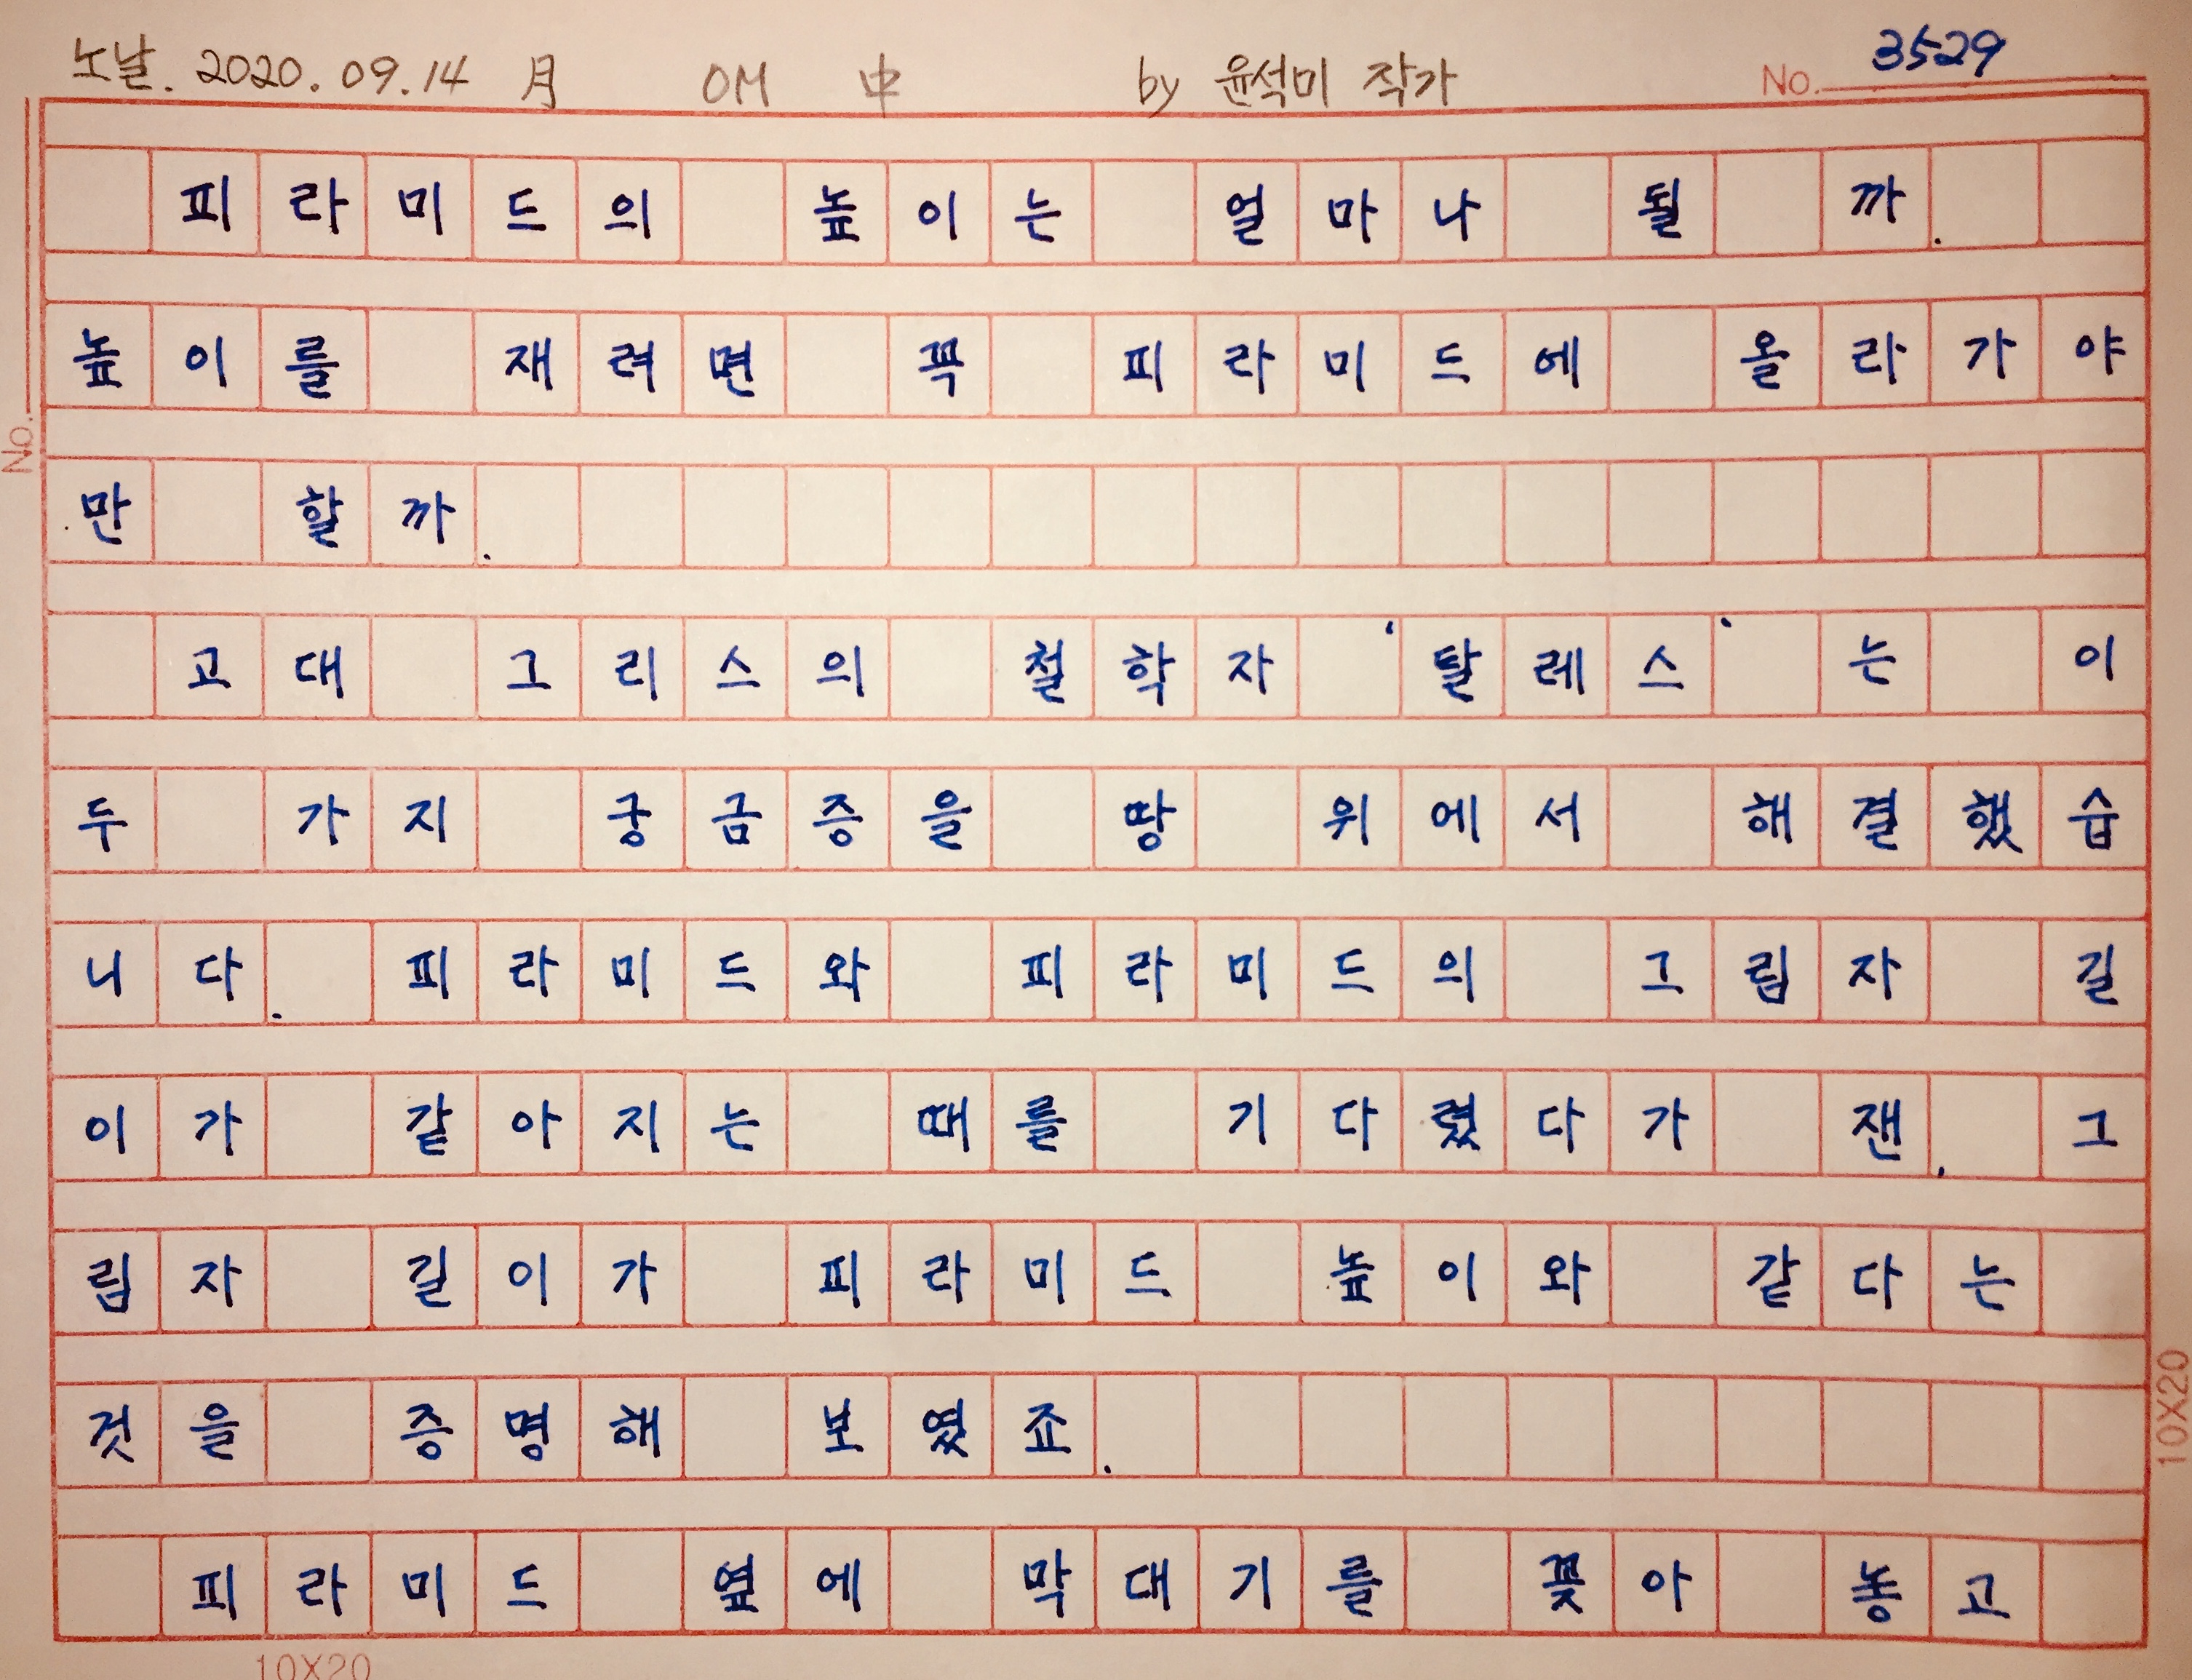 노날. 2020.09.14 月 OM 中 by 윤석미 작가 No. 3529
피라미드의 높이는 얼마나 될 까.
높이를 재려면 꼭 피라미드에 올라가야
만 할까.
고대 그리스의 철학자 '탈레스'는 이
두 가지 궁금증을 땅 위에서 해결했습
니다. 피라미드와 피라미드의 그림자 길
이가 같아지는 때를 기다렸다가 잰, 그
림자 길이가 피라미드 높이와 같다는
것을 증명해 보였죠.
피라미드 옆에 막대기를 꽂아 놓고
No.
10X20
10X20